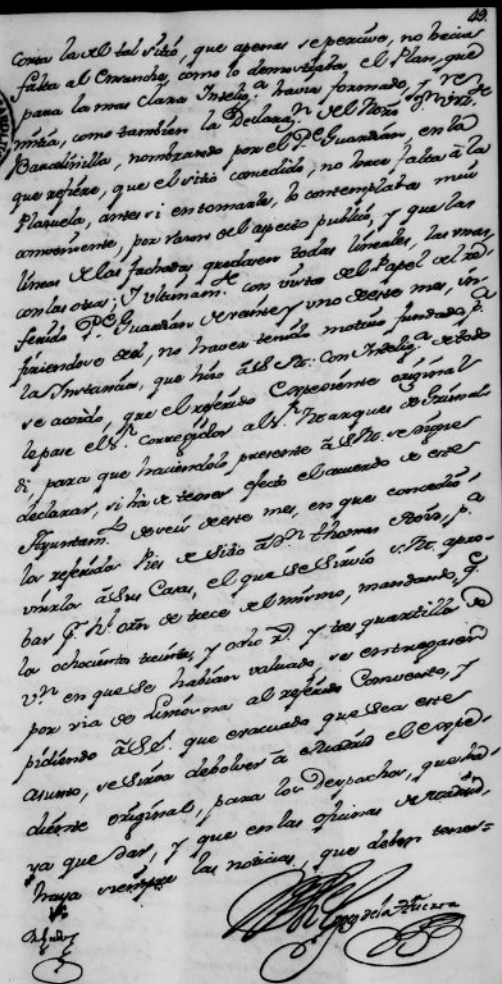 49.
cona la del tal sitio, que apenas se percive, no hacia
falta al Ensanche, como lo demostraba el Plan, que
para la mas clara Intelig.ª havia formado, y re
mitia, como tambien la Declaraz.n del
Barcelinilla, nombrado por el P.e Guardian, en la
que refiere, que el sitio concedido, no hace falta à la
Plazuela, antes si en tomarle, lo contemplaba mui
combeniente, por razon del aspecto publico, y que las
lineas de las fachadas quedasen todas lineales, las unas,
con las otras; Y ultimam.te con vista del Papel del re
ferido P.e Guardian de veinte y uno de este mes, in
firiendose de el, no haver tenido motivo fundado, p.ª
la Instancia, que hizo à S. M.: Con Intelig.ª de todo
se acordó, que el referido Expediente original
le pase el S.r Corregidor al S.r Marques de Grimal
di, para que haciendolo presente à S. M. se digne
declarar, si ha de tener efecto el acuerdo de este
Ayuntam.to de seis de este mes, en que concedió
los referidos Pies de Sitio à D.n Thomas p.ª
unirlos à sus Casas, el que se sirvió S. M. apro-
bar p.r R.l orn de trece del mismo, mandando, q.e
los ochocientos treinta, y ocho r.s y tres quartillos de
v.n en que se habian valuado, se entregasen
por via de Limosna al referido Convento, y
pidiendo à S. E. que evacuado que sea este
asunto, se sirva debolver à Madrid el Expe-
diente original, para los Despachos, que ha-
ya que dar, y que en las oficinas de Madrid,
haya siempre las noticias, que deben tener=